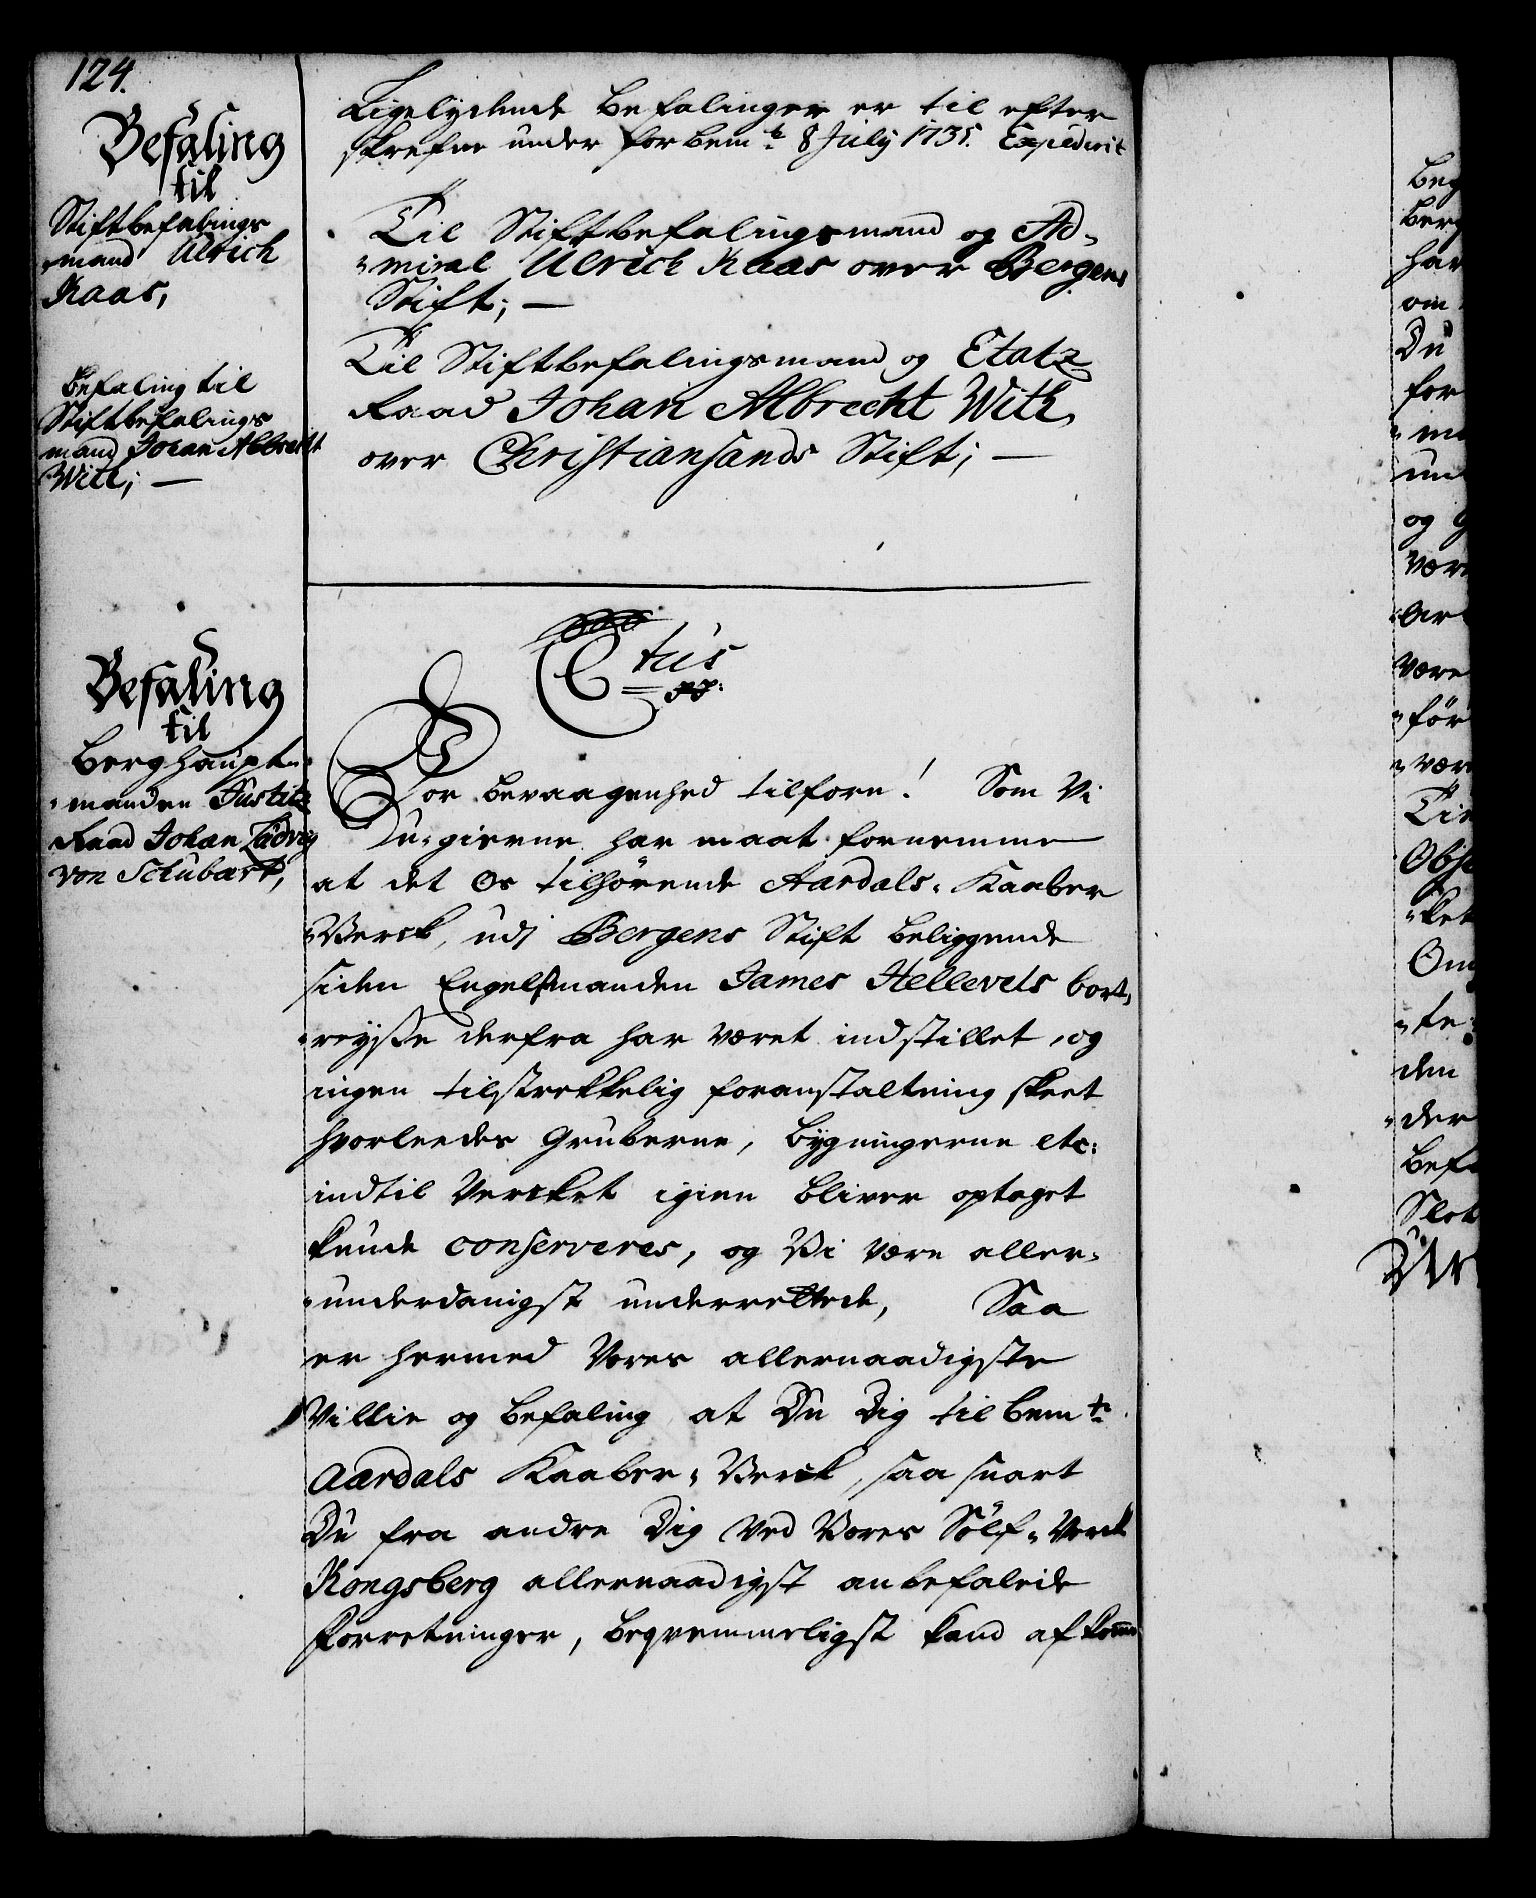 124.
Befaling
til
Stiftbefalings
mand Ulrich
Kaas,
Befaling til
Stiftbefalings
mand Johan Albrecht
With; —
Befaling
til
Berghaupt-
manden Justitz
Raad Johan Ludvig
von Schubart,
Ligelydende Befalinger er til efter
skrefne under forbem.te 8 July 1735. Expederit
Til Stiftbefalingsmand og Ad-
miral Ulrich Kaas over Bergens
Stift; —
Til Stiftbefalingsmand og Etatz
Raad Johan Albrecht With,
over Christiansands Stift; —
Ctus
Vor bevaagenhed tilforn! Som Vi
Ungierne har maat fornemme
at det Os tilhörende Aardals- Kaaber
Verck, udj Bergens Stift beliggende
siden Engelsmanden James Hellevels bort-
reyße derfra har været indstillet, og
ingen tilstrekkelig foranstaltning skeet
hvorleedes Gruberne, Bygningerne etc:
indtil Vercket igien bliver optaget
kunde conserveres, og Vi være aller-
underdanigst underrettede, Saa
er hermed Vores allernaadigste
Villie og befaling at Du Dig til bem.te
Aardals Kaaber- Verck, saa snart
Du fra andre Dig ved Vores Sölf- Verck
Kongsberg allernaadigst anbefalede
Forretninger, beqvemmeligst kand afkomme